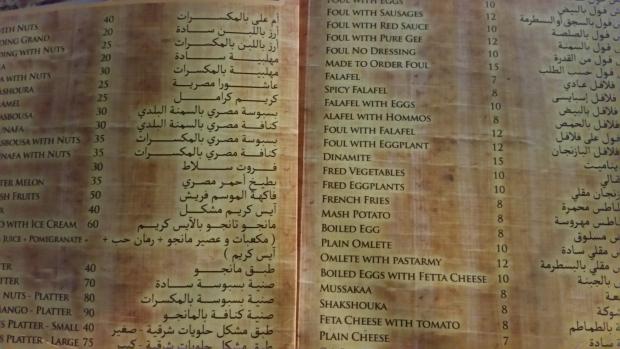 WITH NUTS 40 أم على بالمكسرات
DING GRAND 20 أرز باللبن سادة
DING WITH NUTS أرز باللبن بالمكسرات
20 مهلبية سادة
A WITH NUTS 30 مهلبية بالمكسرات
ASHOURA 25 عاشورا مصرية
AMEL 25 كريم كرامل
ASBOUSA 30 بسبوسة مصري بالسمنة البلدي
UNAFA 30 كنافة مصري بالسمنة البلدي
ASBOUSA WITH NUTS 35 بسبوسة مصري بالمكسرات
UNAFA WITH NUTS 35 كنافة مصري بالمكسرات
30 فروت سلاط
TER MELON 35 بطيخ أحمر مصري
SH FRUITS 50 فاكهة الموسم فريش
40 آيس كريم مشكل
O WITH ICE CREAM 60 مانجو تانجو بالآيس كريم
JUICE + POMIGRANATE + ( مكعبات و عصير مانجو + رمان حب +
آيس كريم )
TER 40 طبق مانجو
TTER 70 صنية بسبوسة سادة
NUTS - PLATTER 80 صنية بسبوسة بالمكسرات
MANGO - PLATTER 90 صنية كنافة بالمانجو
TS PLATTER - SMALL 40 طبق مشكل حلويات شرقية - صغير
TS PLATTER - LARGE 75 طبق مشكل حلويات شرقية - كبير
FOUL WITH EGGS 10 فول بالبيض
FOUL WITH SAUSAGES 12 فول بالسجق أو البسطرمة
FOUL WITH RED SAUCE 8 فول بالصلصة
FOUL WITH PURE GEF 12 فول بالسمنة
FOUL NO DRESSING 10 فول من القدرة
MADE TO ORDER FOUL 15 فول حسب الطلب
FALAFEL 7 فلافل عادي
SPICY FALAFEL 8 فلافل إسبايسى
FALAFEL WITH EGGS 10 فلافل بالبيض
ALAFEL WITH HOMMOS 8 فلافل بالحمص
FOUL WITH FALAFEL 12 فول على فلافل
FOUL WITH EGGPLANT 12 فول بالباذنجان
DINAMITE 15
FRED VEGETABLES 10
FRED EGGPLANTS 10 باذنجان مقلي
FRENCH FRIES 8 بطاطس محمرة
MASH POTATO 8 بطاطس مهروسة
BOILED EGG 8 بيض مسلوق
PLAIN OMLETE 8 مقلي سادة
OMLETE WITH PASTARMY 12 مقلي بالبسطرمة
BOILED EGGS WITH FETTA CHEESE 10 بالجبنة
MUSSAKAA 8
SHAKSHOUKA 8
FETA CHEESE WITH TOMATO 8 بالطماطم
PLAIN CHEESE 7 سادة